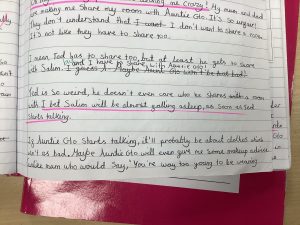 making me crazy! My mum and dad
are making me share my room with Auntie Glo. It's so unfair!
They don't understand that I don't want to share a room.
It's not like they have to share too.
I mean, Ted has to share too, but at least he gets to share
with Salim. and I have to share with Auntie Glo!
Ted is so weird, he doesn't even care who he shares with
I bet Salim will be almost falling asleep, as soon as Ted
Starts talking.
If Auntie Glo Starts talking, it'll probably be about clothes which
isn't as bad. Maybe Auntie Glo will even give me some makeup advice
unlike mum who would Say, "You're way too young to be wearing